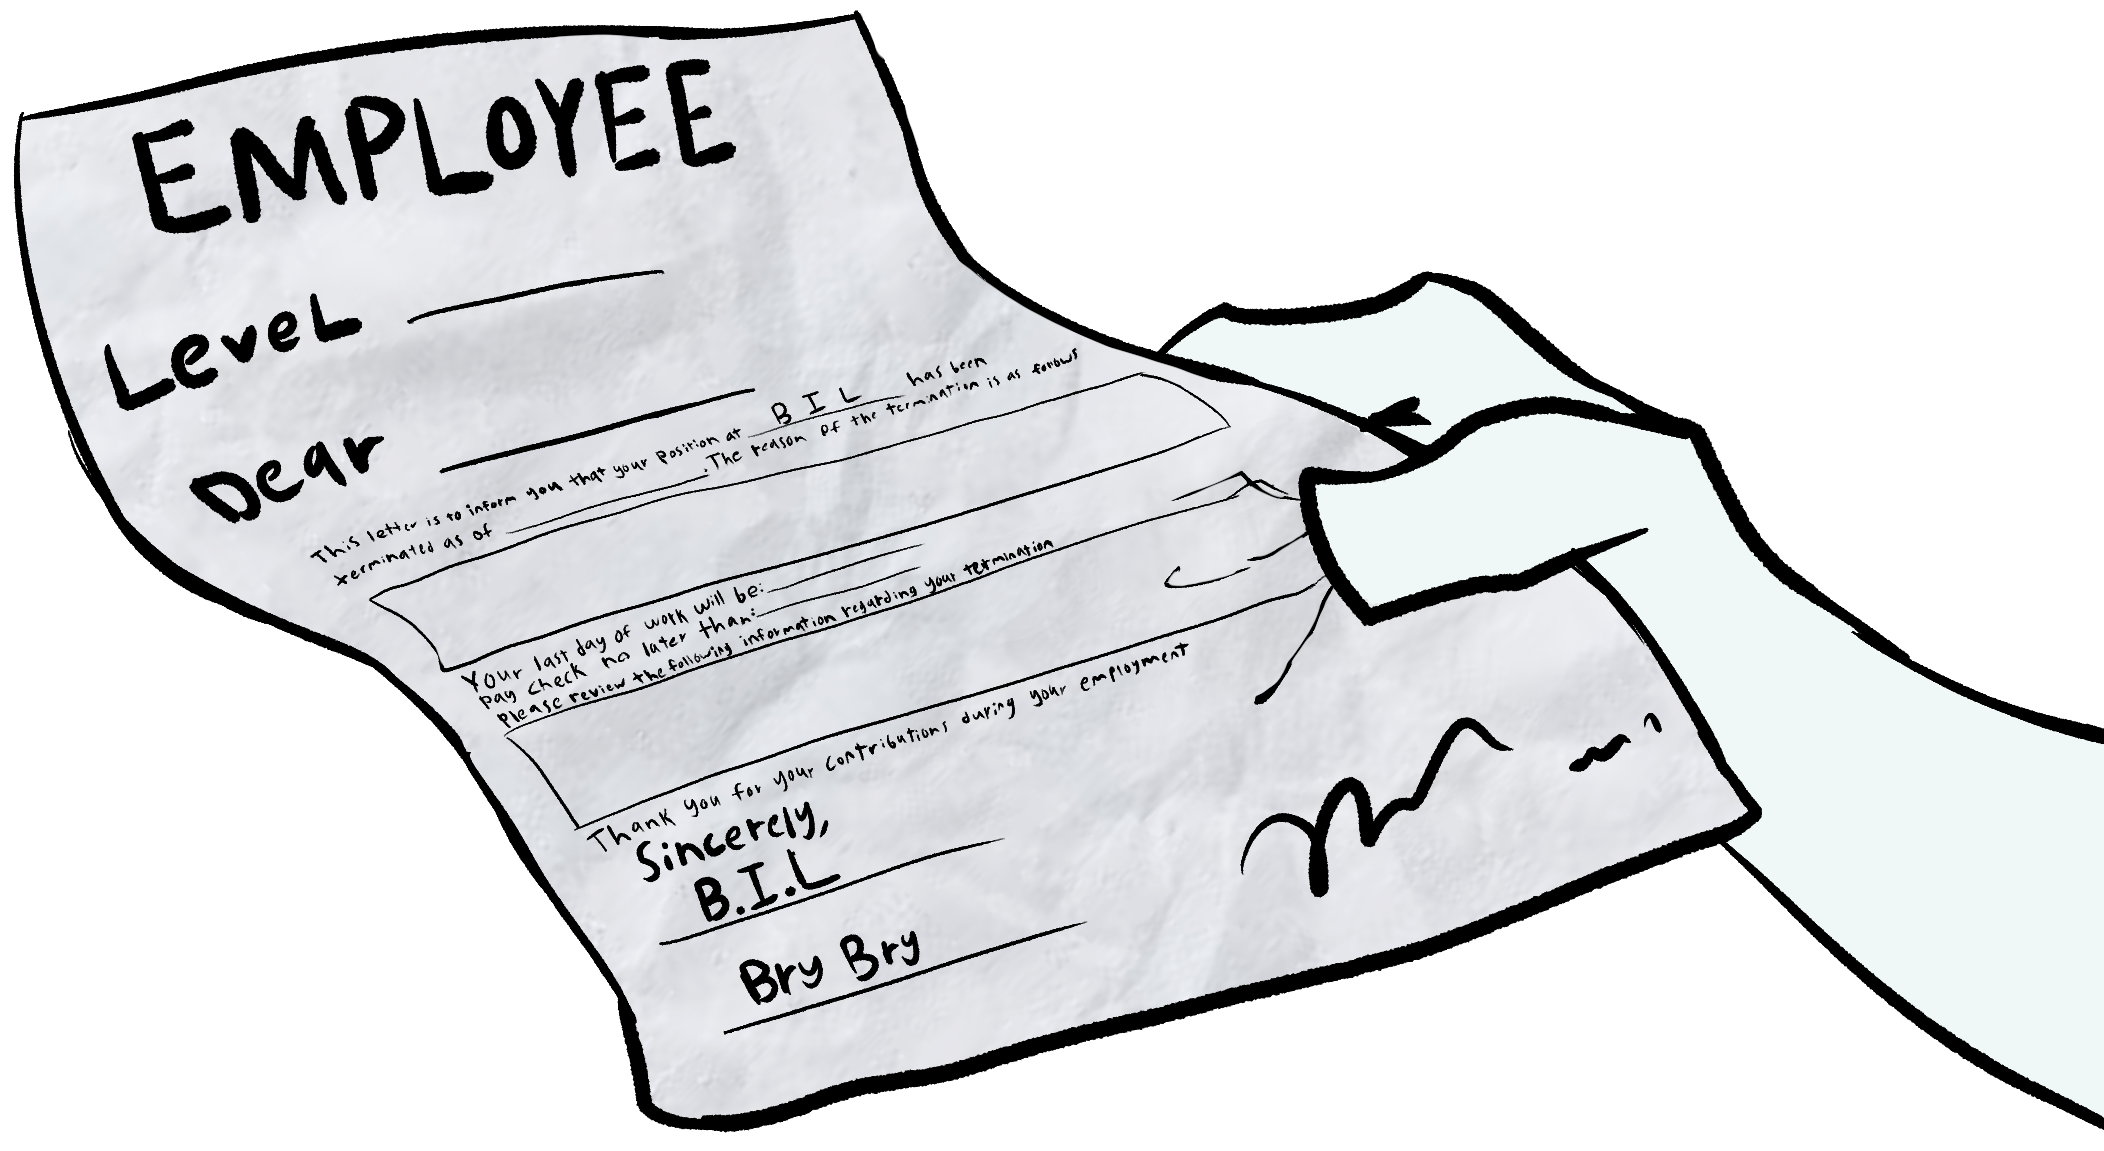 EMPLOYEE
Level
Dear
This letter is to inform you that your position at B I L has been
terminated as of . The reason of the termination is as follows
Your last day of work will be:
pay check no later than:
Please review the following information regarding your termination
Thank you for your contributions during your employment
Sincerely,
B.I.L
Bry Bry